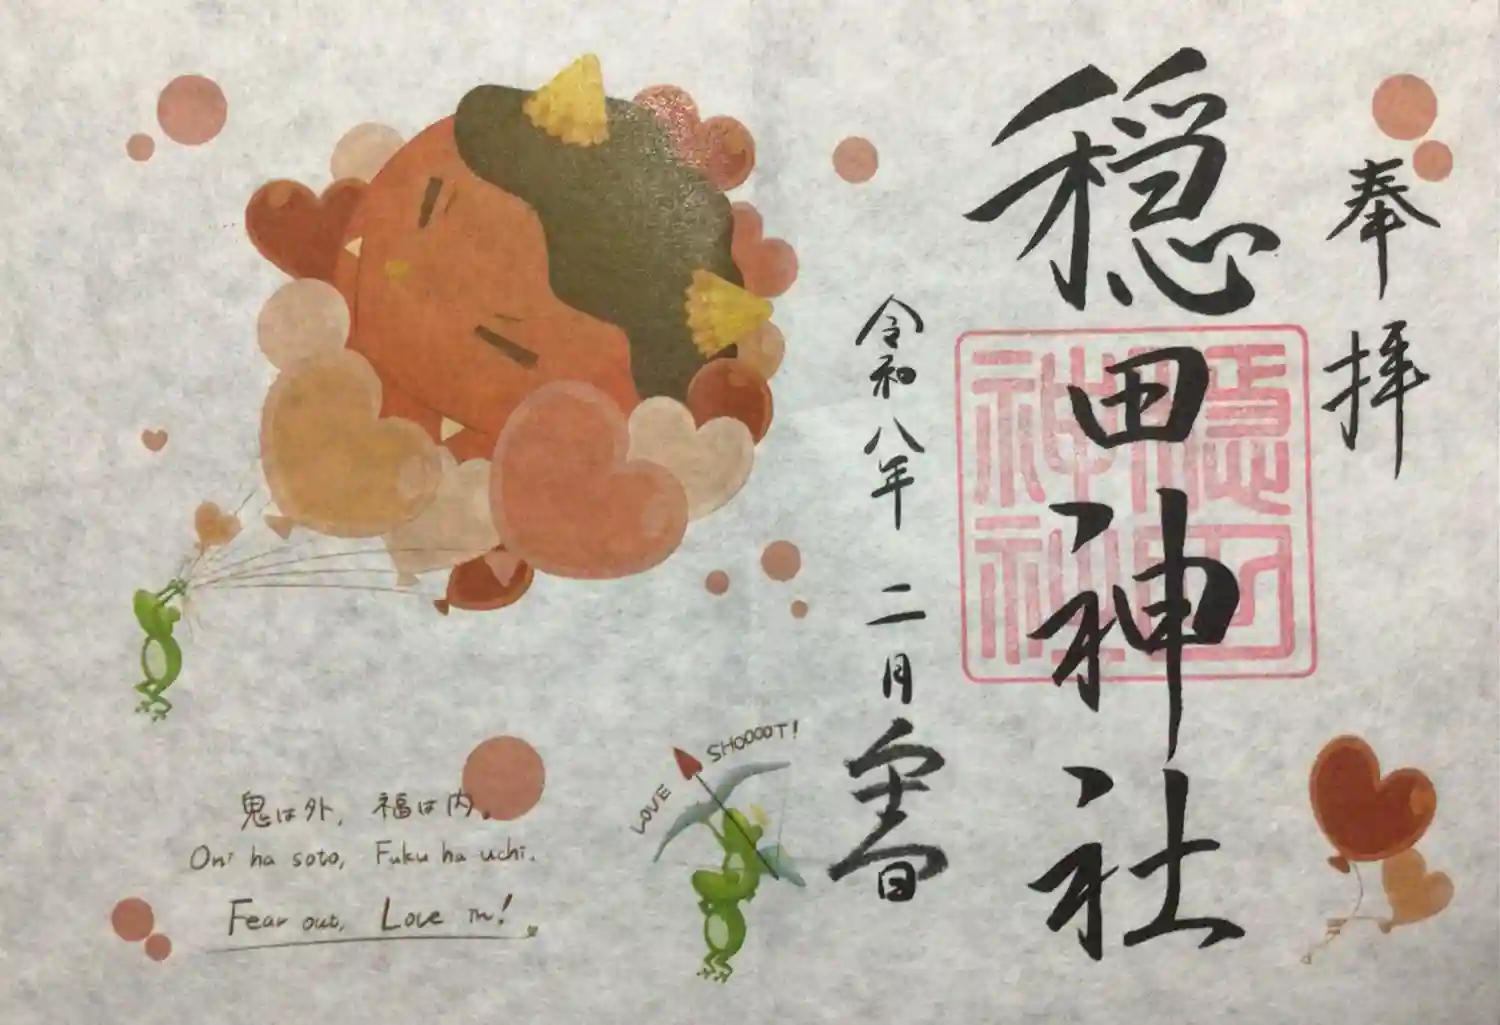 奉拝
穏田神社
令和八年 二月
鬼は外、福は内。
Oni ha soto, Fuku ha uchi.
Fear out, Love in!
LOVE SHOOOOT!